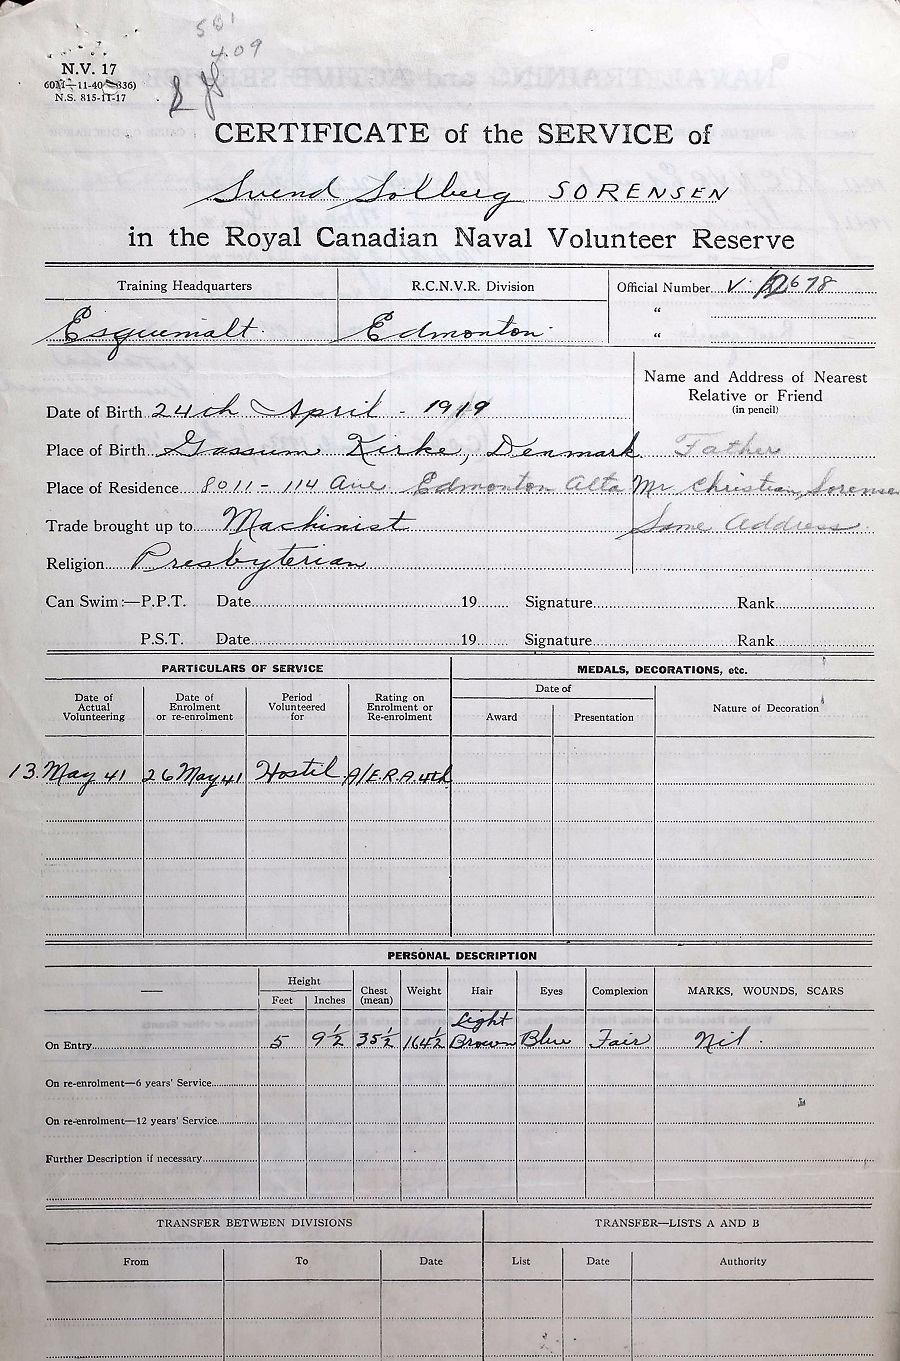 501
4.09
N.V. 17
N.S. 815-11-17
CERTIFICATE of the SERVICE of
Svend Solberg SORENSEN
in the Royal Canadian Naval Volunteer Reserve
Training Headquarters R.C.N.V.R. Division Official Number V. 12678
"
Esquimalt. Edmonton. "
Name and Address of Nearest
Relative or Friend
(in pencil)
Date of Birth 24th April - 1919
Place of Birth Gassum Kirke, Denmark. Father
Place of Residence 8011 - 114 Ave Edmonton Alta Mr Christian Sorensen
Trade brought up to Machinist Same Address.
Religion Presbyterian
Can Swim:—P.P.T. Date 19 Signature Rank
P.S.T. Date 19 Signature Rank
PARTICULARS OF SERVICE MEDALS, DECORATIONS, etc.
Date of Actual Volunteering Date of Enrolment or re-enrolment Period Volunteered for Rating on Enrolment or Re-enrolment Date of Nature of Decoration
Award Presentation
13. May 41 26 May 41 Hostil A/E.R.A 4th
PERSONAL DESCRIPTION
— Height Chest (mean) Weight Hair Eyes Complexion MARKS, WOUNDS, SCARS
Feet Inches
On Entry 5 9½ 35½ 164½ Light Brown Blue Fair Nil.
On re-enrolment—6 years' Service
On re-enrolment—12 years' Service
Further Description if necessary
TRANSFER BETWEEN DIVISIONS TRANSFER—LISTS A AND B
From To Date List Date Authority